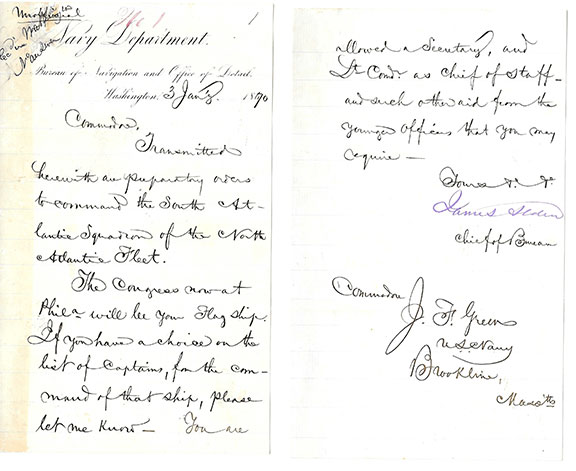 Unofficial
No 1
1
Navy Department.
Bureau of Navigation and Office of Detail.
Washington, 3 Jany. 1870
Commodore,
Transmitted
herewith are preparatory orders
to command the South At-
lantic Squadron of the North
Atlantic Fleet.
The Congress now at
Phila will be your Flag ship.
If you have a choice on the
list of Captains, for the com-
mand of that ship, please
let me know — You are
allowed a Secretary, and
Lt Comdr as chief of staff —
and such other aid from the
younger officers that you may
require —
Yours &. &.
James Alden
Chief of Bureau
Commodore
J. F. Green
U.S. Navy
Brookline,
Massts